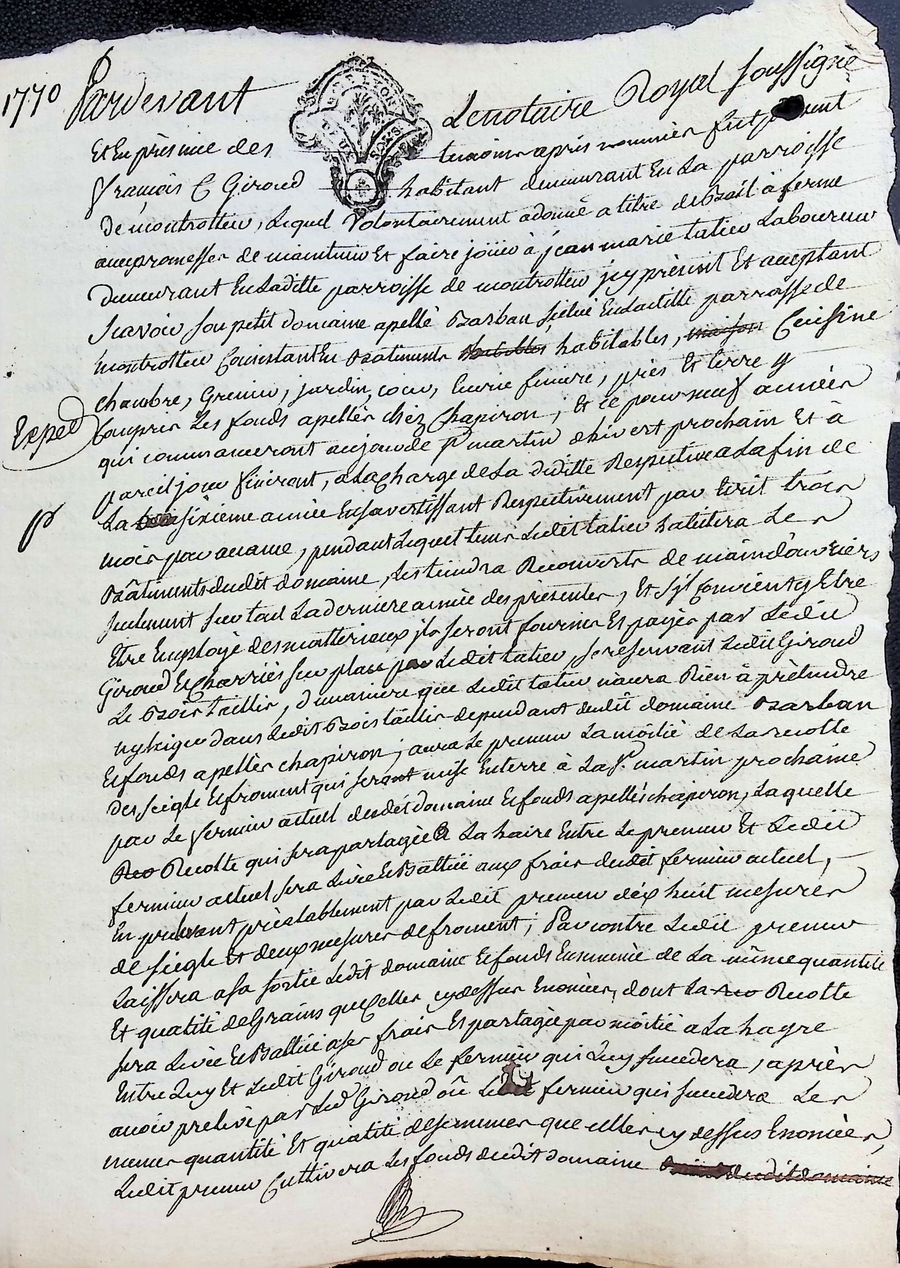 1770 Pardevant Le notaire Royal soussigné
Et En présence des temoins apres nommés fut present
françois C Giroud habitant demeurant En La parroisse
de montrottier, Lequel volontairement a donné a titre de Bail à ferme
avec promesse de maintenir Et faire jouir à jean marie tatieu Laboureur
Demeurant En Laditte parroisse de montrottier jcy présent Et acceptant
Scavoir son petit domaine apellé Barban situé En Laditte parroisse de
montrottier Consistant En Bâtiments habitables habitables, maison Cuisine
chambre, Grenier, jardin, cour, Ecurie feniere, près Et terre y
Compris Les fonds apellés chez Chapiron, Et ce pour neuf années
Exped
qui commenceront au jour de st martin dhivert prochain Et à
pareil jour finiront, a La charge de La dditte Respective a La fin de
La sixieme année En savertissant Respectivement par Ecrit trois
mois par avance, pendant Lequel tems Ledit tatieu habitera Les
Bâtiments dudit domaine, Les tiendra Recouverts de main d'ouvriers
seulement sur tout La derniere année des présentes, Et s'jl Convient y Etre
Etre Employé des matteriaux jls seront fournis Et payés par Ledit
Giroud Et Charriés sur place par Ledit tatieu, se réservant Ledit Giroud
Le Bois taillis, de maniere que Ledit tatieu n'aura Rien à prétendre
dans Ledit Bois taillis dependant dudit domaine Barban
Et fonds apellés chapiron, aura Le preneur La moitié de La recolte
des seigle Et froment qui seront mise En terre à La st martin prochaine
par Le fermier actuel dudit domaine Et fonds apellés chapiron, Laquelle
Rec Recolte qui sera partagée a La haire Entre Le preneur Et Ledit
fermier actuel sera Levée Et Battüe aux frais dudit fermier actuel,
En prelevant préalablement par Ledit preneur dix huit mesures
de siegle Et deux mesures de froment; Par contre Ledit preneur
Laissera a sa sortie Ledit domaine Et fonds Ensemencé de La même quantité
Et quatité de Grains que Celles cy dessus Enoncées, dont La rec Recolte
sera Levée Et Battüe a ses frais Et partagée par moitié a La hayre
Entre Luy Et Ledit Giroud ou Le fermier qui Luy succedera, après
avoir prelevé par Led Giroud oû Ledit fermier qui succedera Les
mêmes quantité Et quatité de semences que celles cy dessus Enoncées,
Ledit preneur Cultivera Les fonds dudit domaine dudit domaine